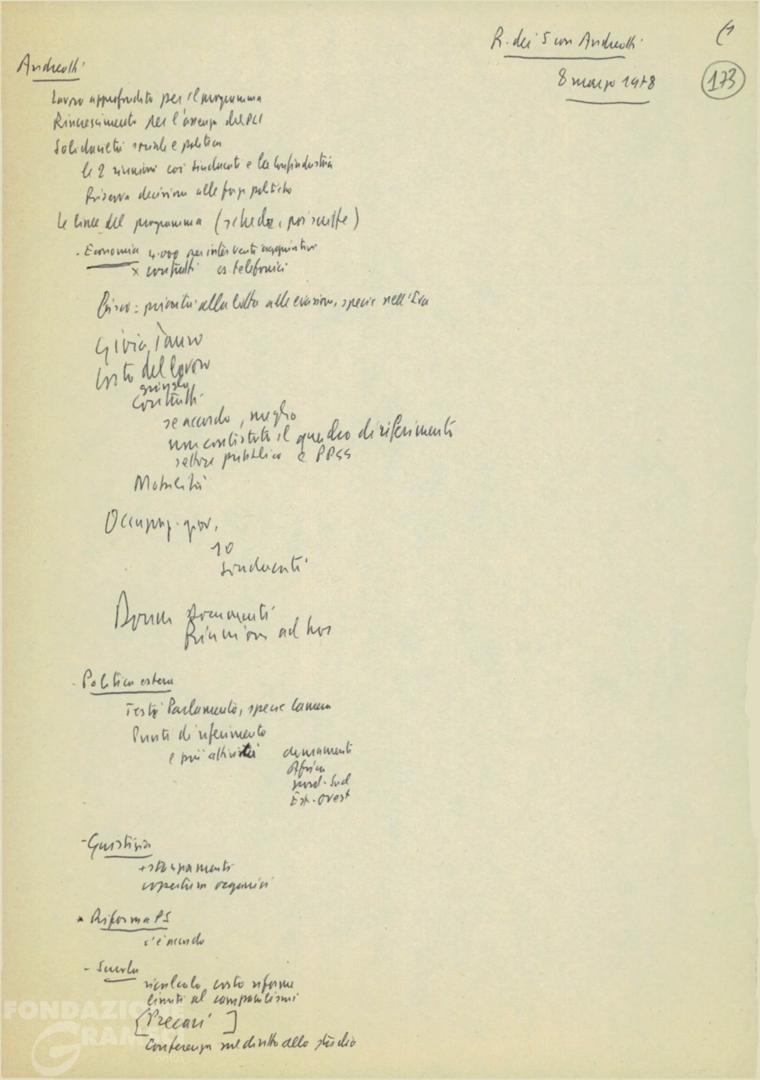 R. dei 5 con Andreotti
8 marzo 1978
173
Andreotti
Lavoro approfondito per il programma
Rincrescimento per l'assenza del PLI
Solidarietà sociale e politica
le 2 riunioni coi sindacati e la Confindustria
Riserva decisioni alle forze politiche
Le linee del programma (schede, poi scritte)
- Economia 4.000 per interventi aggiuntivi
x contratti es telefonici
Fisco: priorità alla lotta alle evasioni, specie nell'Iva
Gioia Tauro
Costo del lavoro
singolo
contratti
se accordo, meglio
non contestato il quadro di riferimento
settore pubblico e PPSS
Mobilità
Occupaz. giov.
10
sindacati
Donne documenti
Riunione ad hoc
- Politica estera
Testi Parlamento, specie Camera
Punti di riferimento
e più attività disarmamenti
Africa
nord-Sud
Est-Ovest
- Giustizia
+ stanziamenti
copertura organici
- Riforma PS
c'è accordo
- Scuola
ricalcolo costo riforme
limiti al
[Precari]
Conferenza sul diritto allo studio
FONDAZIONE
GRAMSCI